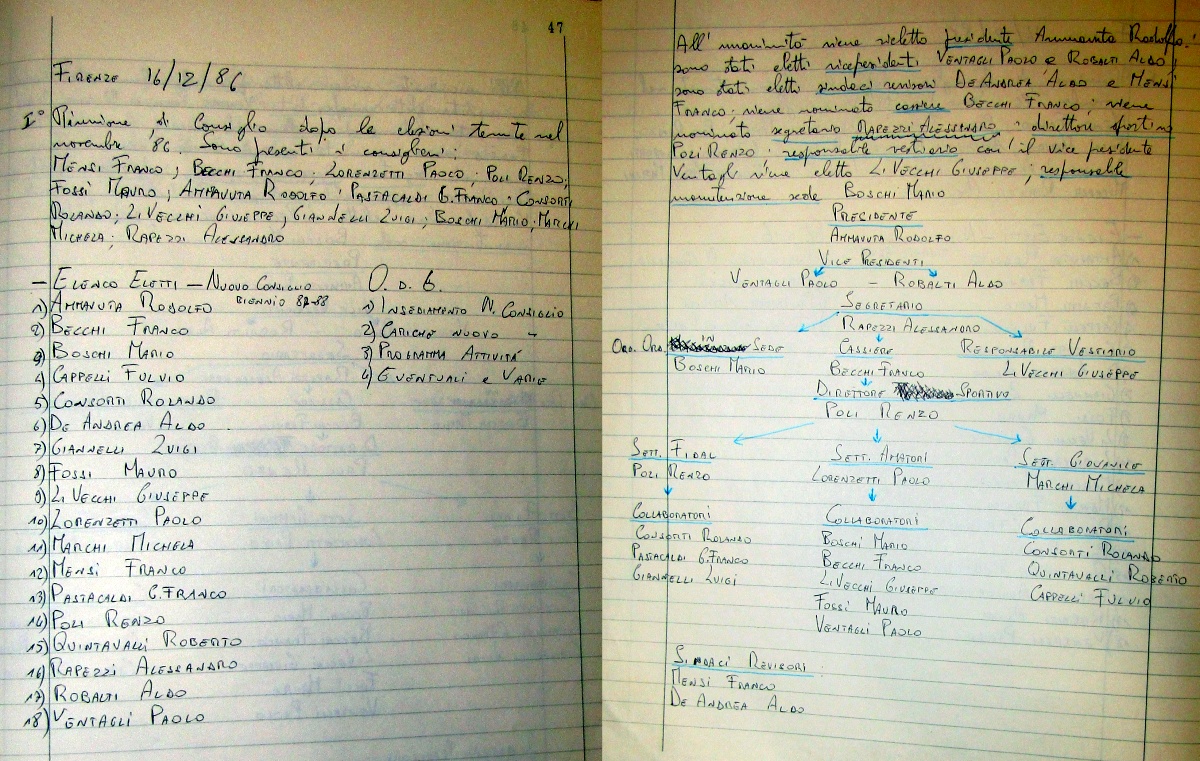 47
FIRENZE 16/12/86
I° Riunione di Consiglio dopo le elezioni tenute nel
novembre 86. Sono presenti i consiglieri:
MENSI FRANCO; BECCHI FRANCO; LORENZETTI PAOLO; POLI RENZO;
FOSSI MAURO; AMMAVUTA RODOLFO; PASTACALDI G.FRANCO; CONSORTI
ROLANDO; LI VECCHI GIUSEPPE; GIANNELLI LUIGI; BOSCHI MARIO; MARCHI
MICHELA; RAPEZZI ALESSANDRO
— ELENCO ELETTI — NUOVO CONSIGLIO O. D. G.
BIENNIO 87-88
1) AMMAVUTA RODOLFO 1) INSEDIAMENTO N. CONSIGLIO
2) BECCHI FRANCO 2) CARICHE NUOVO -
3) BOSCHI MARIO 3) PROGRAMMA ATTIVITÁ
4) CAPPELLI FULVIO 4) EVENTUALI e VARIE
5) CONSORTI ROLANDO
6) DE ANDREA ALDO
7) GIANNELLI LUIGI
8) FOSSI MAURO
9) LI VECCHI GIUSEPPE
10) LORENZETTI PAOLO
11) MARCHI MICHELA
12) MENSI FRANCO
13) PASTACALDI G.FRANCO
14) POLI RENZO
15) QUINTAVALLI ROBERTO
16) RAPEZZI ALESSANDRO
17) ROBALTI ALDO
18) VENTAGLI PAOLO
All'unanimità viene rieletto presidente Ammavuta Rodolfo:
sono stati eletti vicepresidenti VENTAGLI PAOLO e ROBALTI ALDO;
sono stati eletti sindaci revisori DE ANDREA ALDO e MENSI
FRANCO; viene nominato cassiere BECCHI FRANCO; viene
nominato segretario RAPEZZI ALESSANDRO; direttore sportivo
POLI RENZO; responsabile vestiario con il vice presidente
Ventagli viene eletto LI VECCHI GIUSEPPE; responsabile
manutenzione sede BOSCHI MARIO
PRESIDENTE
AMMAVUTA RODOLFO
VICE PRESIDENTI
VENTAGLI PAOLO — ROBALTI ALDO
SEGRETARIO
RAPEZZI ALESSANDRO
IN SEDE CASSIERE RESPONSABILE VESTIARIO
BOSCHI MARIO BECCHI FRANCO LI VECCHI GIUSEPPE
DIRETTORE SPORTIVO
POLI RENZO
SETT. FIDAL SETT. AMATORI SETT. GIOVANILE
POLI RENZO LORENZETTI PAOLO MARCHI MICHELA
COLLABORATORI COLLABORATORI COLLABORATORI
CONSORTI ROLANDO BOSCHI MARIO CONSORTI ROLANDO
PASTACALDI G.FRANCO BECCHI FRANCO QUINTAVALLI ROBERTO
GIANNELLI LUIGI LI VECCHI GIUSEPPE CAPPELLI FULVIO
FOSSI MAURO
VENTAGLI PAOLO
SINDACI REVISORI
MENSI FRANCO
DE ANDREA ALDO